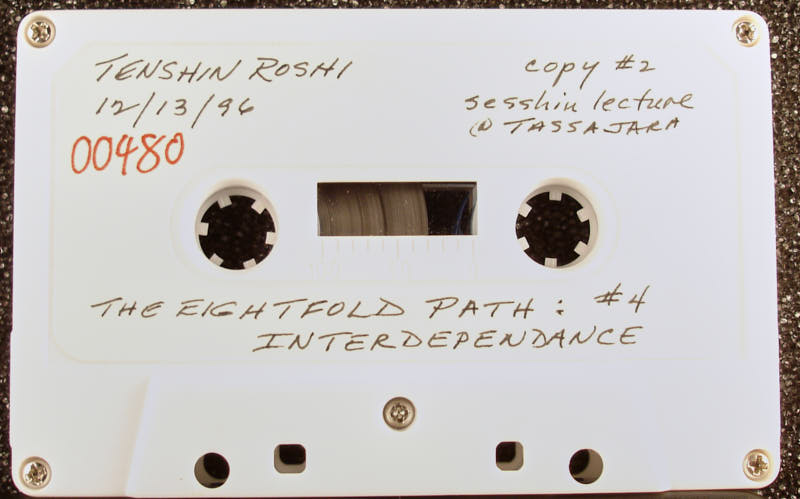 TENSHIN ROSHI
12/13/96
00480
copy #2
sesshin lecture
@ TASSAJARA
THE EIGHTFOLD PATH : #4
INTERDEPENDANCE